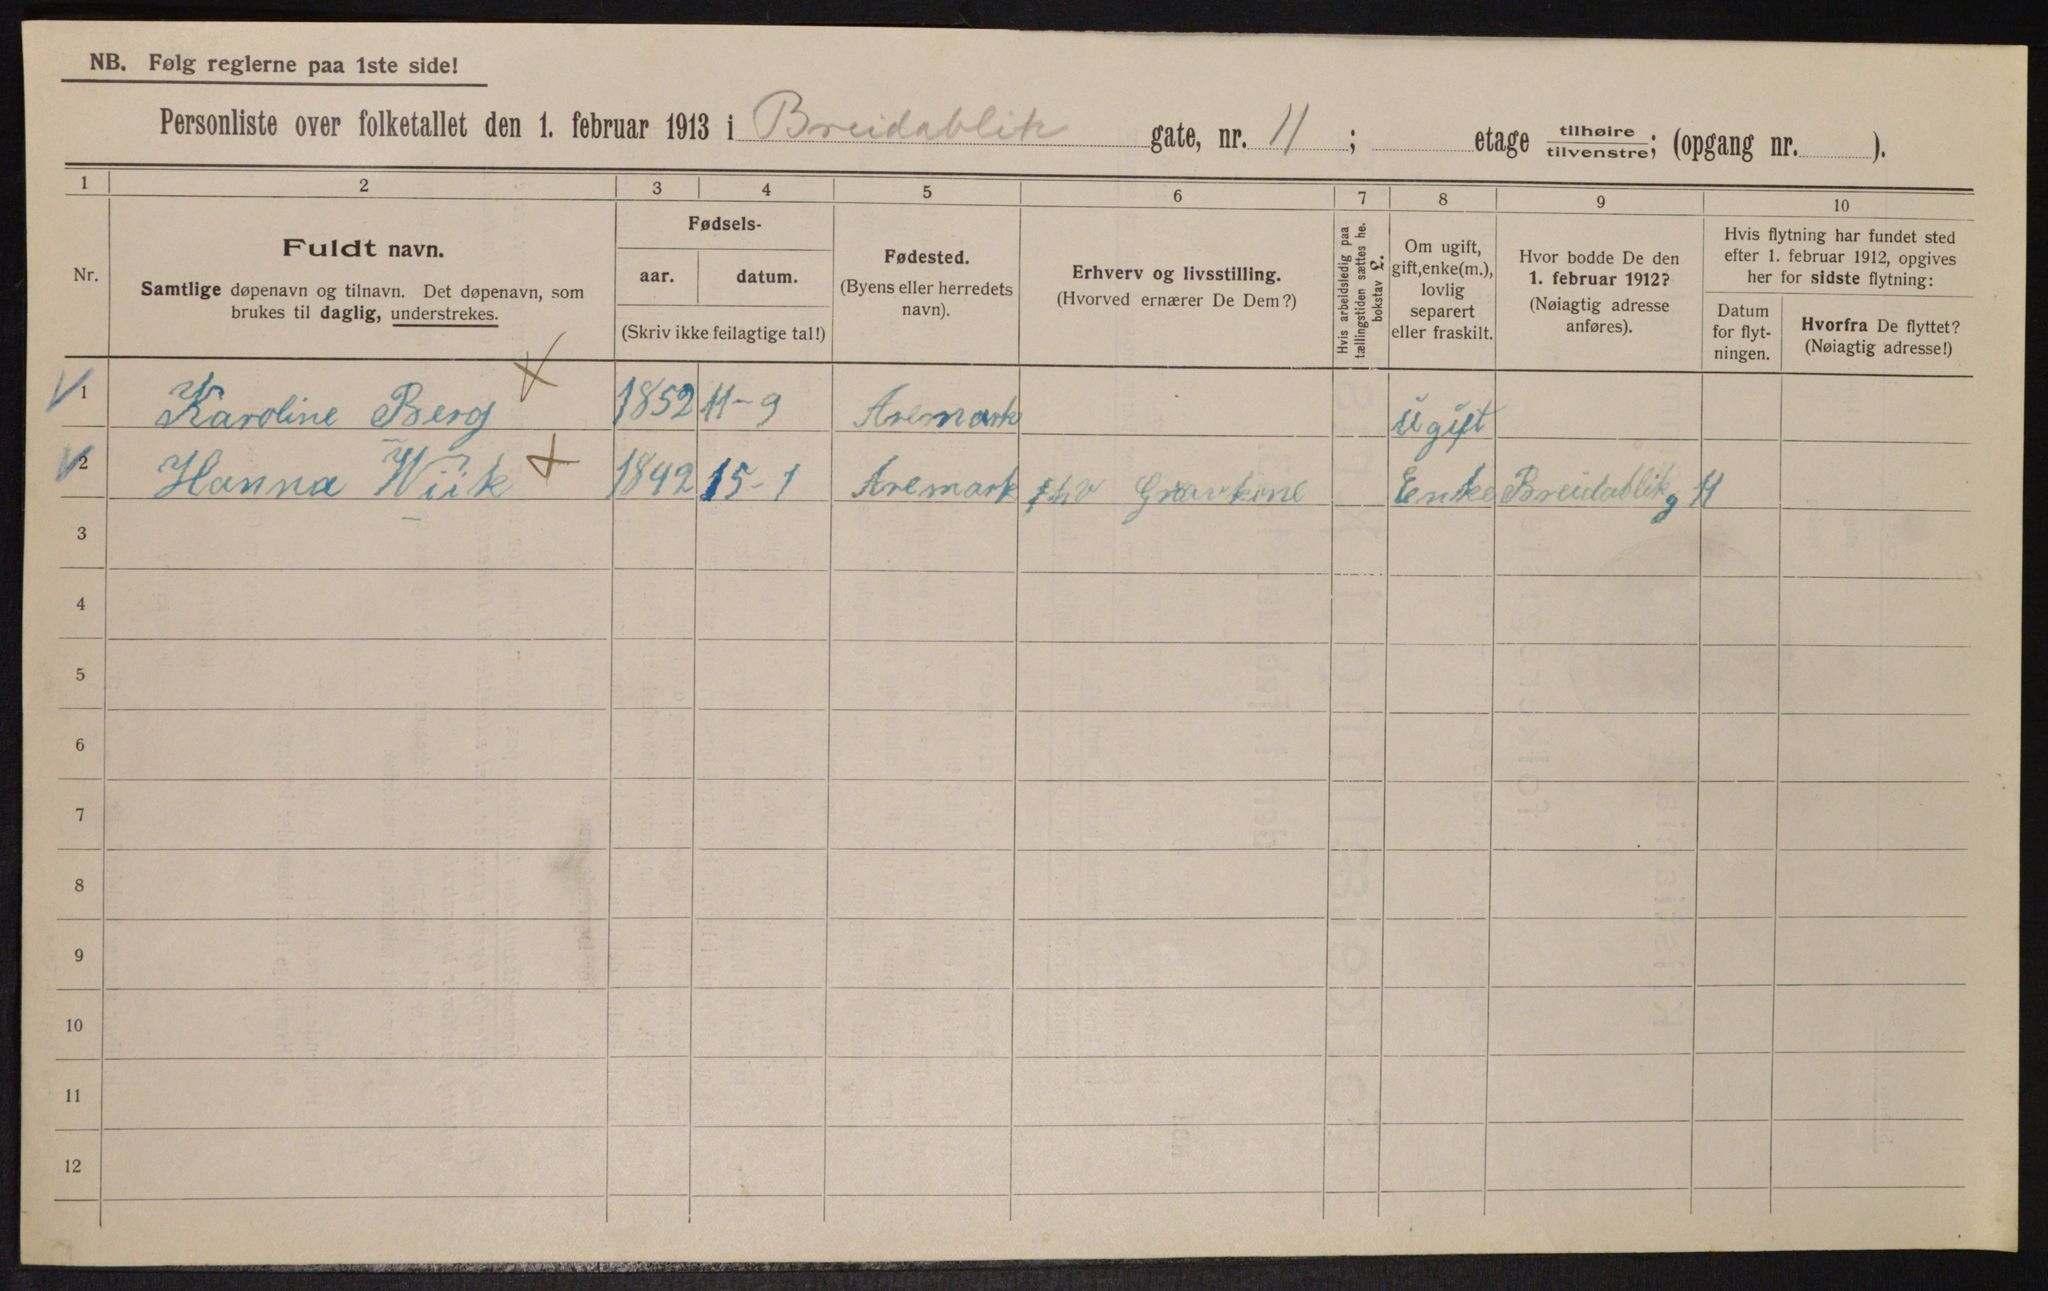 NB. Følg reglerne paa 1ste side!
Personliste over folketallet den 1. februar 1913 i Breidablik gate, nr. 11; etage tilhøire/tilvenstre; (opgang nr. ).
1 2 3 4 5 6 7 8 9 10
Nr.
Fuldt navn.
Samtlige døpenavn og tilnavn. Det døpenavn, som
brukes til daglig, understrekes.
Fødsels-
aar. datum.
(Skriv ikke feilagtige tal!)
Fødested.
(Byens eller herredets
navn).
Erhverv og livsstilling.
(Hvorved ernærer De Dem?)
Hvis arbeidsledig paa
tællingstiden sættes her
bokstav £.
Om ugift,
gift, enke(m.),
lovlig
separert
eller fraskilt.
Hvor bodde De den
1. februar 1912?
(Nøiagtig adresse
anføres).
Hvis flytning har fundet sted
efter 1. februar 1912, opgives
her for sidste flytning:
Datum
for flyt-
ningen.
Hvorfra De flyttet?
(Nøiagtig adresse!)
1 Karoline Berg 1852 11-9 Aremark ugift
2 Hanna Wiik 1842 15-1 Aremark Enke Breidablikg 11
3
4
5
6
7
8
9
10
11
12